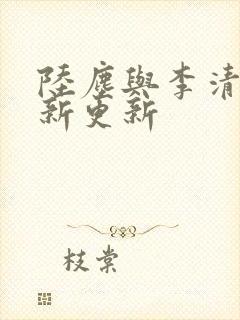 陸塵與李清
新更新
枝棠